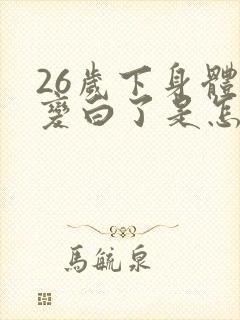 26歲下身體
變白了是怎
馬毓泉